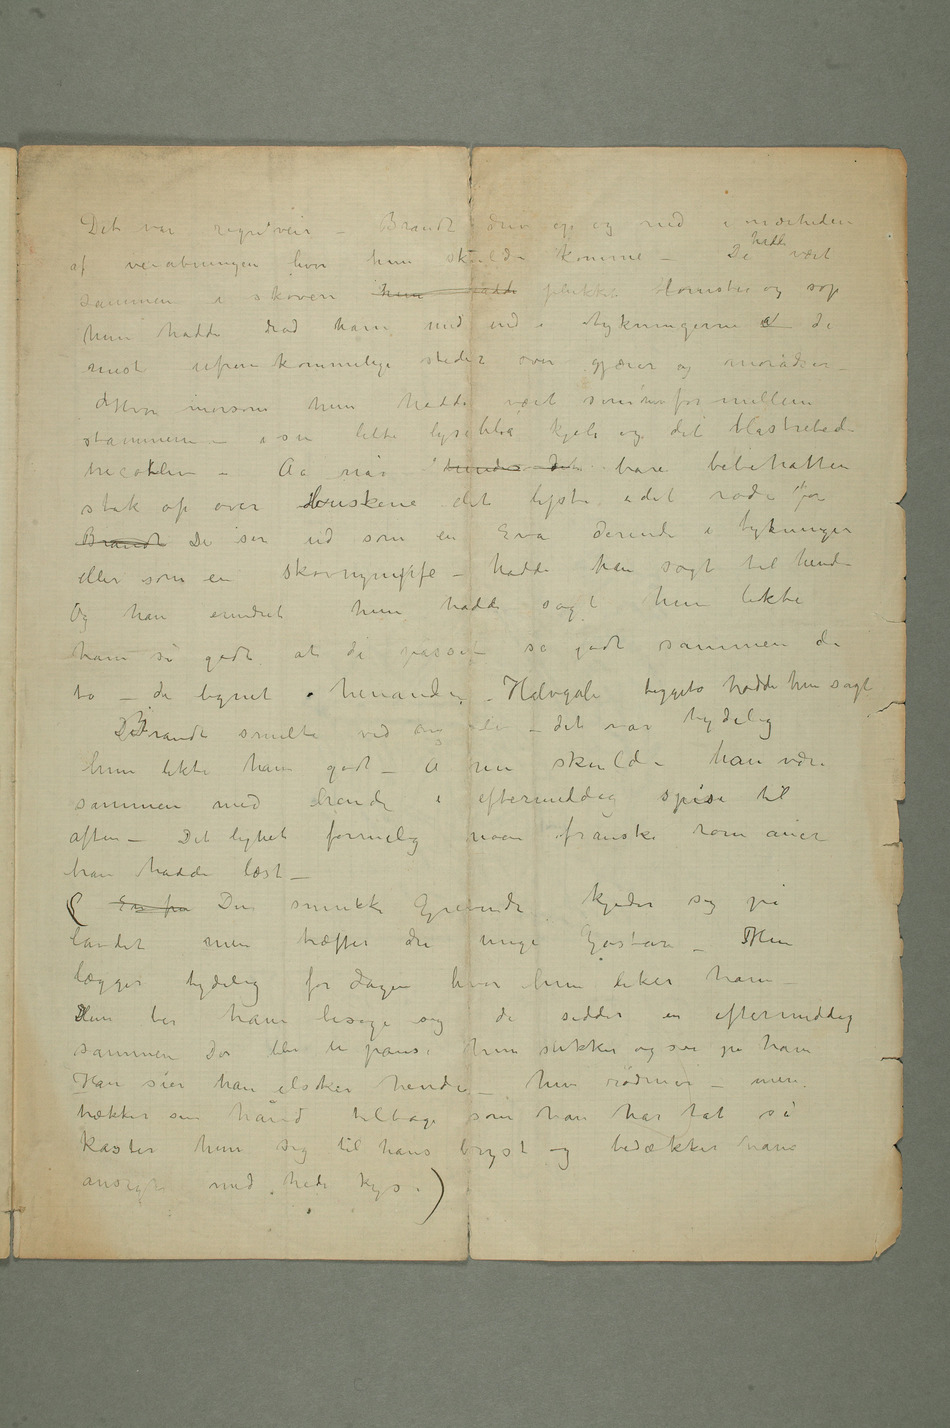 Det var regnveir – Brandt drev op og ned i nærheden
af veiåbningen hvor hun skulde komme – De hadde vært
sammen i skoven hun hadde plukket blomster og sop
hun hadde drad ham med ind i tykningerne at de
mest ufremkommelige steder over gjærer og moradser –
Hvor morsom hun hadde vært som hun for mellem
stammerne – i sin lette lyseblå kjole og det
– Aa når hendes det bare bebehatten
stak op over buskene det lyste i det røde
Brandt De ser ud som en Eva derinde i tykningen
eller som en skovnymffe – hadde han sagt til hende
Og han erindret hun hadde sagt hun likte
ham så godt at de passet så godt sammen de
to – de lignet hinanden – Halvgale beggeto hadde hun sagt
Brandt smilte ved – det var tydelig
hun likte ham godt – Å nu skulde han være
sammen med hende i eftermiddag spise til
aften – Det lignet formelig noen franske romaner
han hadde læst –
( En fru Den smukke Grevinde kjeder sig på
landet men træffer den unge Gaston – Hun
lægger tydelig for dagen hvor hun liker ham –
Hun ber ham besøge sig de sidder en eftermiddag
sammen Der blir en pause hun sukker og ser på ham
Han sier han elsker hende – hun rødmer – men
trækker sin hånd tilbage som han har tat så
kaster hun sig til hans bryst og bedækker hans
ansigt med hede kys. )